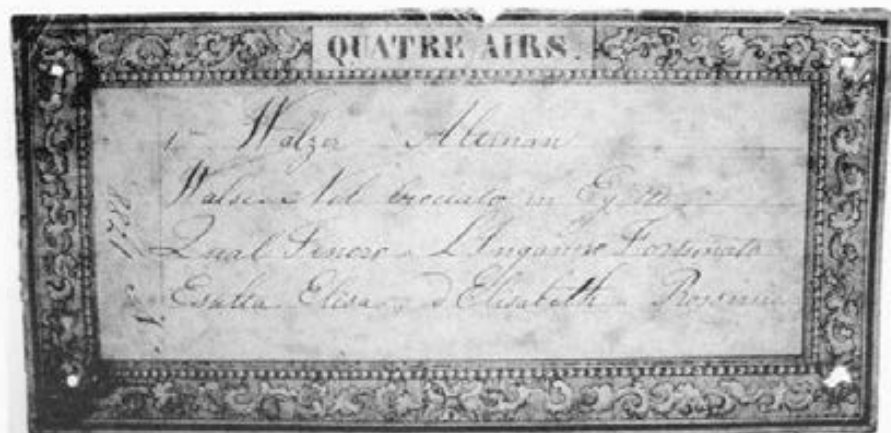 QUATRE AIRS.
1. Walzer Aleman
Walse. Nel crociato in
Qual L'Inganno Fortunato
Esulta Elisa. d'Elisabeth. Rossini